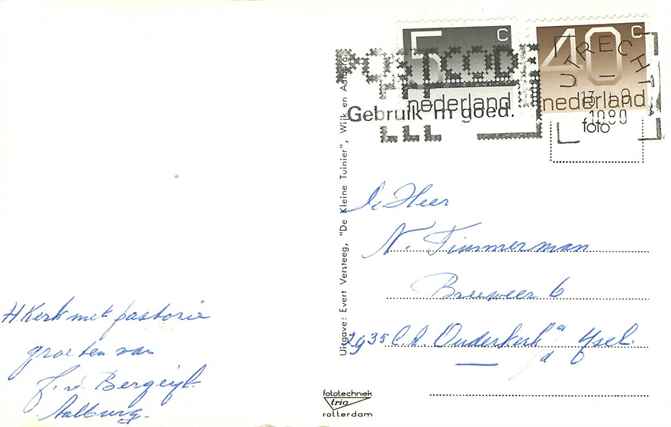 5 c
nederland
40 c
nederland
POSTCODE
Gebruik 'm goed.
UTRECHT
1980
foto
Uitgave: Evert Versteeg, "De Kleine Tuinier", Wijk en Aalburg
de Heer
N. Timmerman
Breeweer 6
2935 C.A. Ouderkerk a d Ysel.
H Kerk met pastorie
groeten van
J. v. Bergeijk
Aalburg.
fototechniek
trio
rotterdam